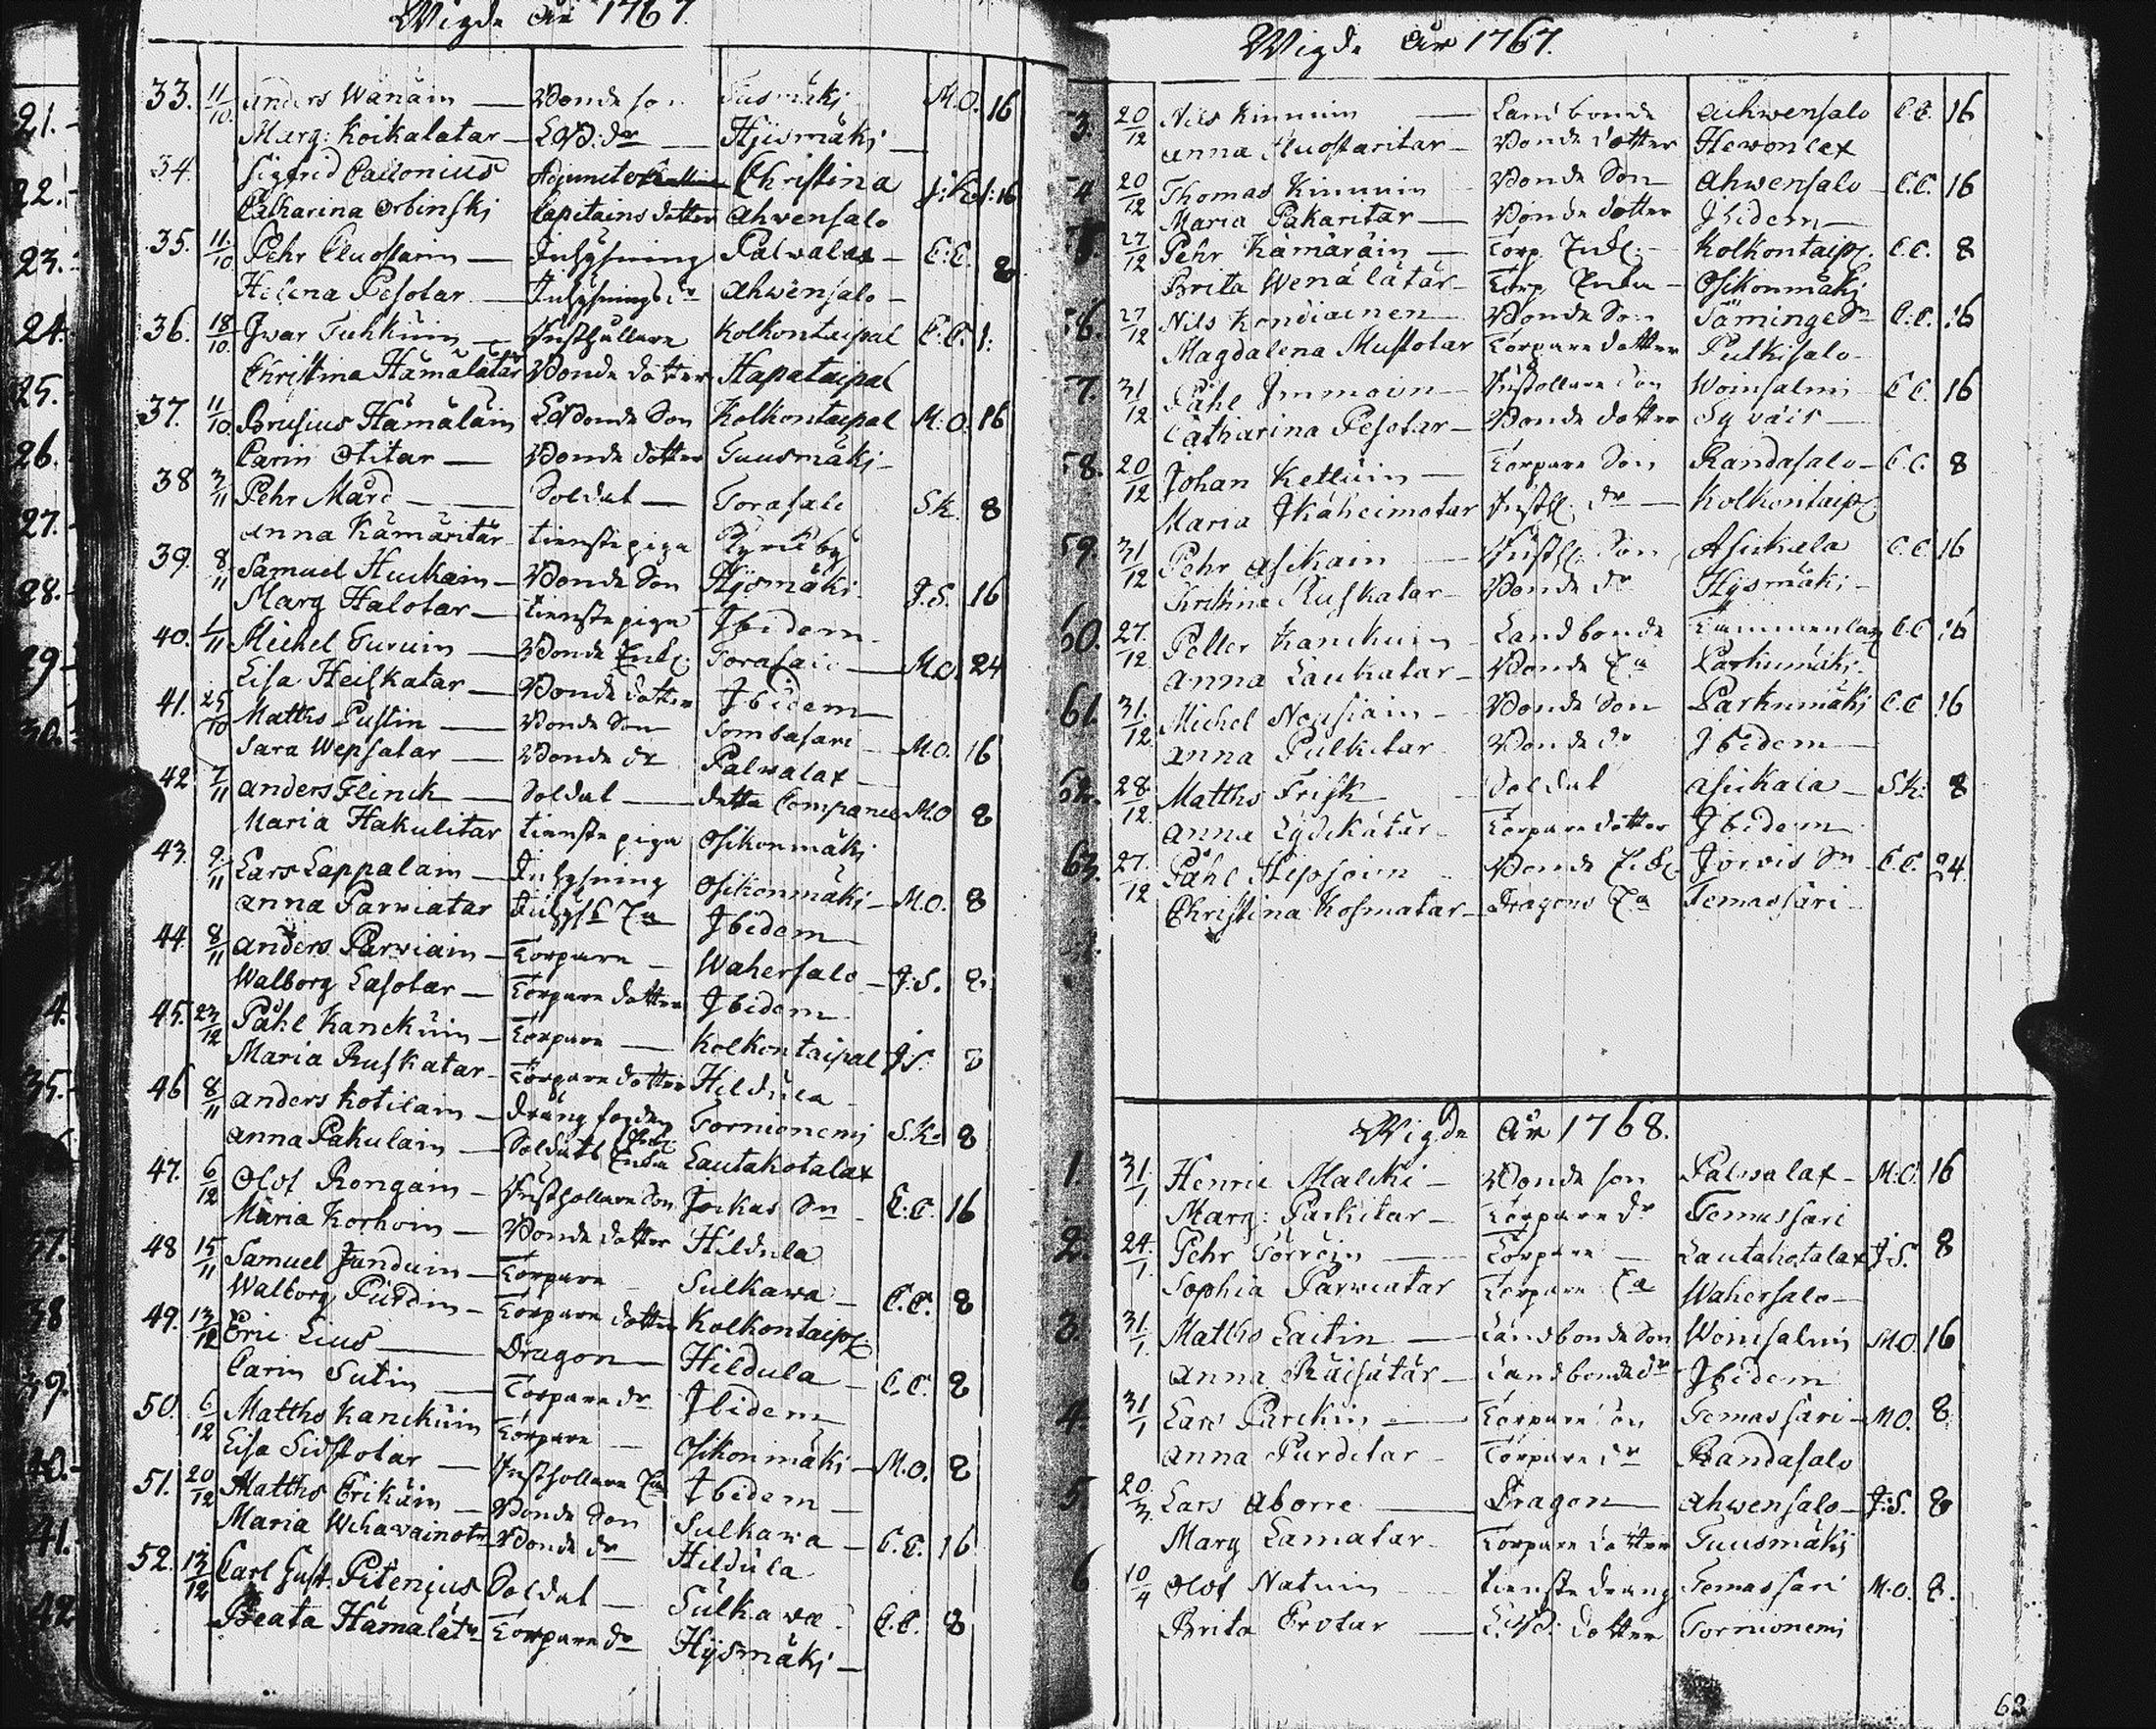 Wigde År 1767.
33. 11/10 Anders Wänäin — Bonde son Tusmäki M.O. 16
Marg: Koikalatar — L.B: dr — Hjismäki —
34. Sigfrid Callonius Adjuncte Christina J: K 1:16
Catharina Orbinski Capitains dotter Ahvensalo
35. 11/10 Pehr Cluostarin — Inhysning Palvalax — C:C. 8
Helena Pesotar — Inhysnings dr Ahwensalo —
36. 18/10 Jwar Tuhkuin — Kolkontaipal C:C. 1:
Christina Hämälätär Bonde dotter Hapataipal
37. 11/10 Brusius Hämäläin LBonde Son Kolkontaipal M:O. 16
Carin Otitar — Bonde dotter Tuusmäki —
38 3/11 Pehr Mård — Soldat — Torasalo SK. 8
Anna Kämäritär tienstepiga Kyrckby
39. 8/11 Samuel Huckain — Bonde Son Hjismäki J.S. 16
Marg Halotar — tienstepiga Ibidem
40. 1/11 Michel Turuin — Bonde Enkl. Torasalo — M.O. 24
Lisa Heiskatar — Bonde dotter Ibidem
41. 25/10 Matths Pustin — Bonde Son Sombasari — M.O. 16
Sara Wepsalar — Bonde dr Palvalax —
42 7/11 Anders Flinck — Soldat — detta Companie M.O 8
Maria Hakulitar tienste piga Osikonmäki
43. 9/11 Lars Lappalain — Inhysning Osikonmäki — M.O. 8
Anna Parwiatar Inhyss Ea Ibidem
44. 8/11 Anders Parviain — Torpare — Wahersalo — J:S. 8.
Walborg Lasotar — Torpare dotter Ibidem
45. 23/12 Påhl Kanckuin — Torpare — Kolkontaipal J.S. 8
Maria Ruskatar — Torpare dotter Hildula
46 8/11 Anders Kotilain — Dräng Tornionemi S.K. 8
Anna Pakulain — Soldats Enka Lautakotalax
47. 6/12 Olof Rongain — Son Jockas Sn — C:C. 16
Maria Korhoin — Bonde dotter Hildula
48 15/11 Samuel Janduin — Torpare Sulkawa — C.C. 8
Walborg Purdin — Torpare dotter Kolkontaipl
49. 13/12 Eric Lius — Dragon — Hildula — C.C. 8
Carin Sutin — Torpare dr Ibidem
50. 6/12 Matths Kanckuin Torpare — Osikonmäki — M.O. 8
Lisa Sidstotar — Ea Ibidem —
51. 20/12 Matths Erikäin — Bonde Son Sulkawa — C.C. 16
Maria Wehavainotr Bonde dr Hildula
52. 13/12 Carl Gust. Pitenius Soldat — Sulkawa C.C. 8
Beata Hämälätr Torpare dr Hijsmäki —
Wigde År 1767.
3. 20/12 Nils Kinnuin — Landbonde Ahwensalo C.C. 16
Anna Cluostaritar — Bonde dotter Hewonlax
4 20/12 Thomas Kinnuin — Bonde Son Ahwensalo — C.C. 16
Maria Pakaritar — Bonde dotter Ibidem —
27/12 Pehr Kämäräin — Torp. Enkl. — Kolkontaipl. C.C. 8
Brita Wenälätär — Torp Enka — Osikonmäki
56. 27/12 Nils Kondiainen — Bonde Son Säminge Sn C:C. 16
Magdalena Mustotar Torpare dotter Putkisalo —
7. 31/12 Påhl Immoin — Son Woinsalmi — C.C. 16
Catharina Pesotar — Bonde dotter Syväis —
58. 20/12 Johan Kettuin — Torpare Son Randasalo — C.C. 8
Maria Ikäheimotar dr — Kolkontaipl
59. 31/12 Pehr Asikain Son Asikala C.C. 16
Kristina Ruskatar — Bonde dr Hysmäki —
60. 27/12 Petter Kanckuin — Landbonde C.C 16
Anna Laukatar — Bonde Ea Parkumäki
61. 31/12 Michel Nousiain — Bonde Son Parkumäki C.C 16
Anna Pulkitar Bonde dr Ibidem —
62. 28/12 Matths Frisk — Soldat Asickala — SK: 8
Anna Lydikätär — Torpare dotter Ibidem
63. 27/12 Påhl Hepsoin Bonde Enkl. Jorvis Sn — C.C. 24
Christina Kosmatar — Dragons Ea Temassari —
Wigde År 1768.
1. 31/1 Henric Malcki — Bonde son Palvalax — M.O. 16
Marg: Parkitar — Torpare dr Temassari
2. 24/1 Pehr Torröin — Torpare — Lautakotalax J.S. 8
Sophia Parwiatar Torpare Ea Wahersalo —
3. 31/1 Matths Laitin — Landbonde Son Woinsalmi M.O. 16
Anna Räisätär — Landbonde dr Ibidem
4. 31/1 Lars Purckin — Torpare Son Temassari — M.O. 8
Anna Purditar — Torpare dr Randasalo
5. 20/3 Lars Aborre — Dragon — Ahwensalo — J:S. 8
Marg Lamatar — Torpare dotter Tuusmäki
6 10/4 Olof Natuin — tienste dräng Temassari M.O. 8.
Brita Erotar — L.B: dotter Tornionemi
62
21.
22.
23.
24.
25.
26.
27.
28.
29
4.
35.
38
39.
40.
41.
42